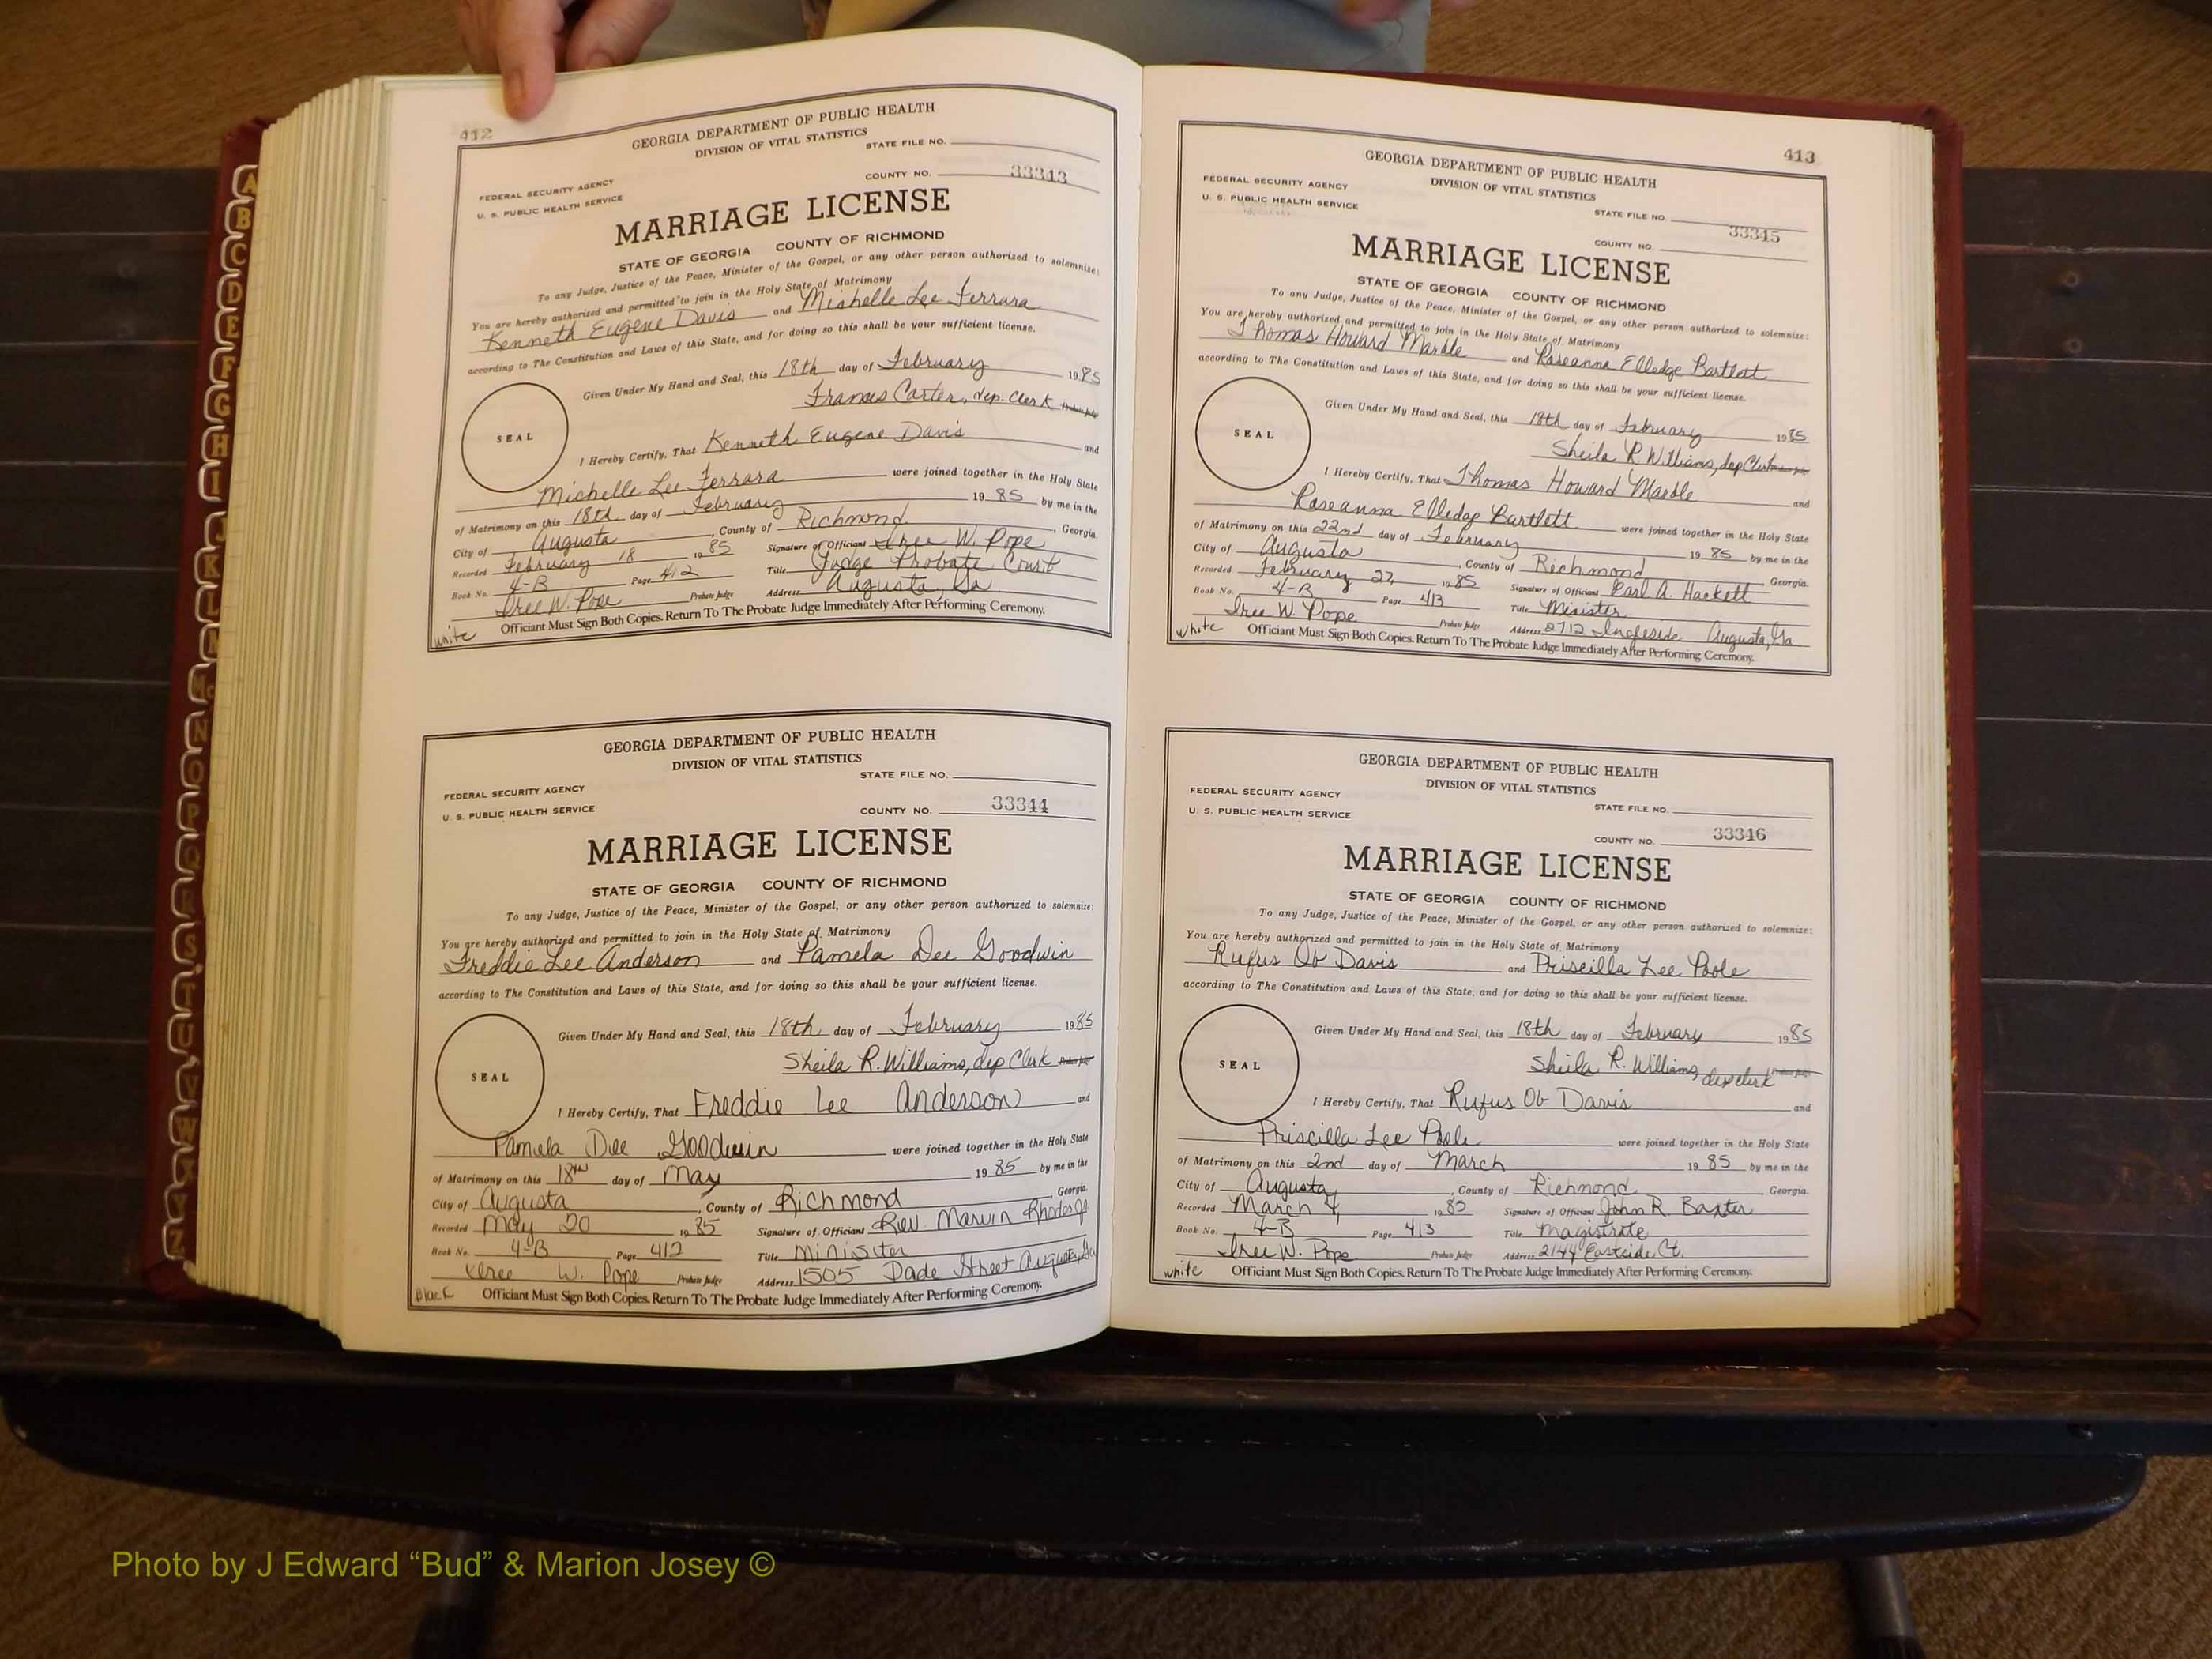 412
GEORGIA DEPARTMENT OF PUBLIC HEALTH
DIVISION OF VITAL STATISTICS
STATE FILE NO.
FEDERAL SECURITY AGENCY
COUNTY NO. 33343
U. S. PUBLIC HEALTH SERVICE
MARRIAGE LICENSE
STATE OF GEORGIA COUNTY OF RICHMOND
To any Judge, Justice of the Peace, Minister of the Gospel, or any other person authorized to solemnize:
You are hereby authorized and permitted to join in the Holy State of Matrimony
Kenneth Eugene Davis and Michelle Lee Ferrara
according to The Constitution and Laws of this State, and for doing so this shall be your sufficient license.
Given Under My Hand and Seal, this 18th day of February 1985
Frances Carter, dep. Clerk Probate Judge
SEAL
I Hereby Certify, That Kenneth Eugene Davis and
Michelle Lee Ferrara were joined together in the Holy State
of Matrimony on this 18th day of February 1985 by me in the
City of Augusta, County of Richmond, Georgia.
Recorded February 18 1985 Signature of Officiant Iree W. Pope
Book No. 4-B Page 412 Title Judge Probate Court
Iree W. Pope Probate Judge Address Augusta, Ga
white Officiant Must Sign Both Copies. Return To The Probate Judge Immediately After Performing Ceremony.
GEORGIA DEPARTMENT OF PUBLIC HEALTH
DIVISION OF VITAL STATISTICS
STATE FILE NO.
FEDERAL SECURITY AGENCY
COUNTY NO. 33344
U. S. PUBLIC HEALTH SERVICE
MARRIAGE LICENSE
STATE OF GEORGIA COUNTY OF RICHMOND
To any Judge, Justice of the Peace, Minister of the Gospel, or any other person authorized to solemnize:
You are hereby authorized and permitted to join in the Holy State of Matrimony
Freddie Lee Anderson and Pamela Dee Goodwin
according to The Constitution and Laws of this State, and for doing so this shall be your sufficient license.
Given Under My Hand and Seal, this 18th day of February 1985
Sheila R. Williams, dep Clerk Probate Judge
SEAL
I Hereby Certify, That Freddie Lee Anderson and
Pamela Dee Goodwin were joined together in the Holy State
of Matrimony on this 18th day of May 1985 by me in the
City of Augusta, County of Richmond, Georgia.
Recorded May 20 1985 Signature of Officiant Rev. Marvin Rhodes Jr
Book No. 4-B Page 412 Title Minister
Iree W. Pope Probate Judge Address 1505 Dade Street Augusta, Ga
Black Officiant Must Sign Both Copies. Return To The Probate Judge Immediately After Performing Ceremony.
413
GEORGIA DEPARTMENT OF PUBLIC HEALTH
DIVISION OF VITAL STATISTICS
FEDERAL SECURITY AGENCY
STATE FILE NO.
U. S. PUBLIC HEALTH SERVICE
COUNTY NO. 33345
MARRIAGE LICENSE
STATE OF GEORGIA COUNTY OF RICHMOND
To any Judge, Justice of the Peace, Minister of the Gospel, or any other person authorized to solemnize:
You are hereby authorized and permitted to join in the Holy State of Matrimony
Thomas Howard Markle and Roseanna Elledge Bartlett
according to The Constitution and Laws of this State, and for doing so this shall be your sufficient license.
Given Under My Hand and Seal, this 18th day of February 1985
Sheila R. Williams, dep Clerk
SEAL
I Hereby Certify, That Thomas Howard and
Roseanna Elledge Bartlett were joined together in the Holy State
of Matrimony on this 22nd day of February 1985 by me in the
City of Augusta, County of Richmond Georgia.
Recorded February 27 1985 Signature of Officiant A. Hackett
Book No. 4-B Page 413 Title Minister
Iree W. Pope Probate Judge Address 2712 Ingleside Augusta, Ga
white Officiant Must Sign Both Copies. Return To The Probate Judge Immediately After Performing Ceremony.
GEORGIA DEPARTMENT OF PUBLIC HEALTH
DIVISION OF VITAL STATISTICS
FEDERAL SECURITY AGENCY
STATE FILE NO.
U. S. PUBLIC HEALTH SERVICE
COUNTY NO. 33346
MARRIAGE LICENSE
STATE OF GEORGIA COUNTY OF RICHMOND
To any Judge, Justice of the Peace, Minister of the Gospel, or any other person authorized to solemnize:
You are hereby authorized and permitted to join in the Holy State of Matrimony
Rufus Ob Davis and Priscilla Lee Poole
according to The Constitution and Laws of this State, and for doing so this shall be your sufficient license.
Given Under My Hand and Seal, this 18th day of February 1985
Sheila R. Williams, dep clerk Probate Judge
SEAL
I Hereby Certify, That Rufus Ob Davis and
Priscilla Lee Poole were joined together in the Holy State
of Matrimony on this 2nd day of March 1985 by me in the
City of Augusta, County of Richmond Georgia.
Recorded March 4, 1985 Signature of Officiant John R. Baxter
Book No. 4-B Page 413 Title Magistrate
Iree W. Pope Probate Judge Address 2144 Eastside Ct.
white Officiant Must Sign Both Copies. Return To The Probate Judge Immediately After Performing Ceremony.
A
B
C
D
E
F
G
H
I
J
K
L
M
Mc
N
O
P
Q
R
S
T
U
V
W
X
Y
Z
Photo by J Edward “Bud” & Marion Josey ©